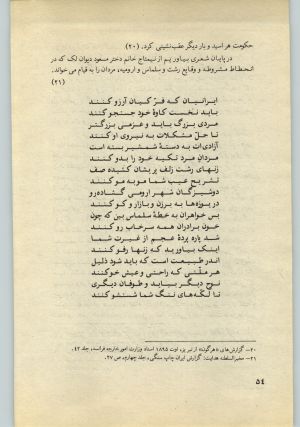 حکومت هراسید و بار دیگر عقب‌نشینی کرد. (۲۰)
در پایان شعری بیاوریم از نیمتاج خانم دختر مسعود دیوان لک که در
انحطاط مشروطه و وقایع رشت و سلماس و ارومیه، مردان را به قیام می‌خواند.
(۲۱)
ایرانیان که فرّ کیان آرزو کنند
باید نخست کاوهٔ خود جستجو کنند
مردی بزرگ باید و عزمی بزرگتر
تا حل مشکلات به نیروی او کنند
آزادی‌ات به دستهٔ شمشیر بسته است
مردان مرد تکیه خود را بدو کنند
زنهای رشت زلف پریشان کشیده صف
تشریح عیب شما مو به مو کنند
دوشیزگان شهر ارومی گشاده‌رو
در یوزه‌ها به برزن و بازار و کو کنند
بس خواهران به خطهٔ سلماس بین که چون
خون برادران همه سرخاب رو کنند
شد پاره پردهٔ عجم از غیرت شما
اینک بیاورید که زنها رفو کنند
اندر طبیعت است که باید شود ذلیل
هر ملّتی که راحتی و عیش خو کنند
نوح دیگر بیاید و طوفان دیگری
تا لکّه‌های ننگ شما شستشو کنند
۲۰- گزارش‌های «هرگون» از تبریز، اوت ۱۸۹۵ اسناد وزارت امور خارجه فرانسه، جلد ۴۲.
۲۱- مخبرالسلطنه هدایت: گزارش ایران چاپ سنگی، جلد چهارم، ص ۲۷.
۵۴